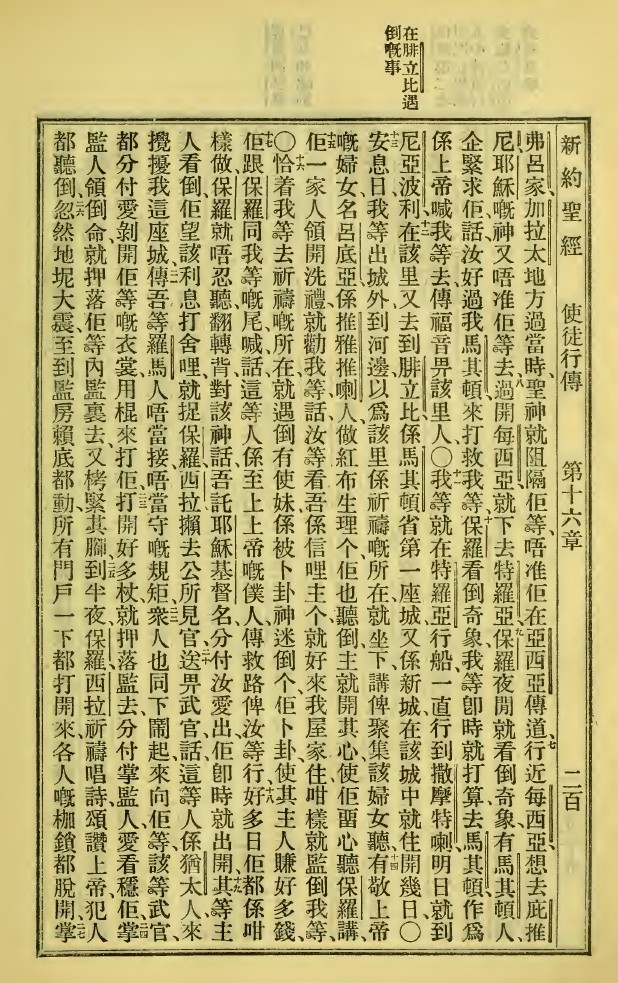 在腓立比遇
倒嘅事
新約聖經 使徒行傳 第十六章 二百
弗呂家、加拉太地方過當時、聖神就阻隔佢等、唔准佢在亞西亞傳道、七行近每西亞、想去庇推
尼、耶穌嘅神又唔准佢等去、八過開每西亞、就下去特羅亞、九保羅夜間就看倒奇象、有馬其頓人、
企緊求佢、話汝好過我馬其頓來打救我等、十保羅看倒奇象、我等卽時就打算去馬其頓、作爲
係上帝喊我等去傳福音畀該里人、〇十一我等就在特羅亞行船、一直行到撒摩特喇、明日就到
尼亞波利、十二在該里又去到腓立比、係馬其頓省第一座城、又係新城、在該城中就住開幾日、〇
十三安息日我等出城外、到河邊、以爲該里係祈禱嘅所在、就坐下講俾聚集該婦女聽、十四有敬上帝
嘅婦女、名呂底亞、係推雅推喇人、做紅布生理个、佢也聽倒、主就開其心、使佢畱心聽保羅講、
十五佢一家人領開洗禮、就勸我等話、汝等看吾係信哩主个、就好來我屋家住、咁樣就監倒我等、
〇十六恰着我等去祈禱嘅所在、就遇倒有使妹、係被卜卦神迷倒个、佢卜卦、使其主人賺好多錢、
十七佢跟保羅同我等嘅尾、喊話、這等人係至上上帝嘅僕人、傳救路俾汝等行、十八好多日佢都係咁
樣做、保羅就唔忍聽、翻轉背對該神話、吾託耶穌基督名、分付汝愛出、佢卽時就出開、十九其等主
人看倒佢望該利息打舍哩、就捉保羅西拉、攋去公所見官、二十送畀武官、話、這等人係猶太人、來
攪擾我這座城、二一傳吾等羅馬人唔當接唔當守嘅規矩、二二衆人也同下鬧起來向佢等、該等武官、
都分付愛剝開佢等嘅衣裳、用棍來打佢、二三打開好多杖、就押落監去、分付掌監人愛看穩佢、二四掌
監人領倒命、就押落佢等內監裏去、又栲緊其脚、二五到半夜保羅西拉祈禱唱詩、頌讚上帝、犯人
都聽倒、二六忽然地坭大震、至到監房賴底都動、所有門戶、一下都打開來、各人嘅枷鎖都脫開、二七掌